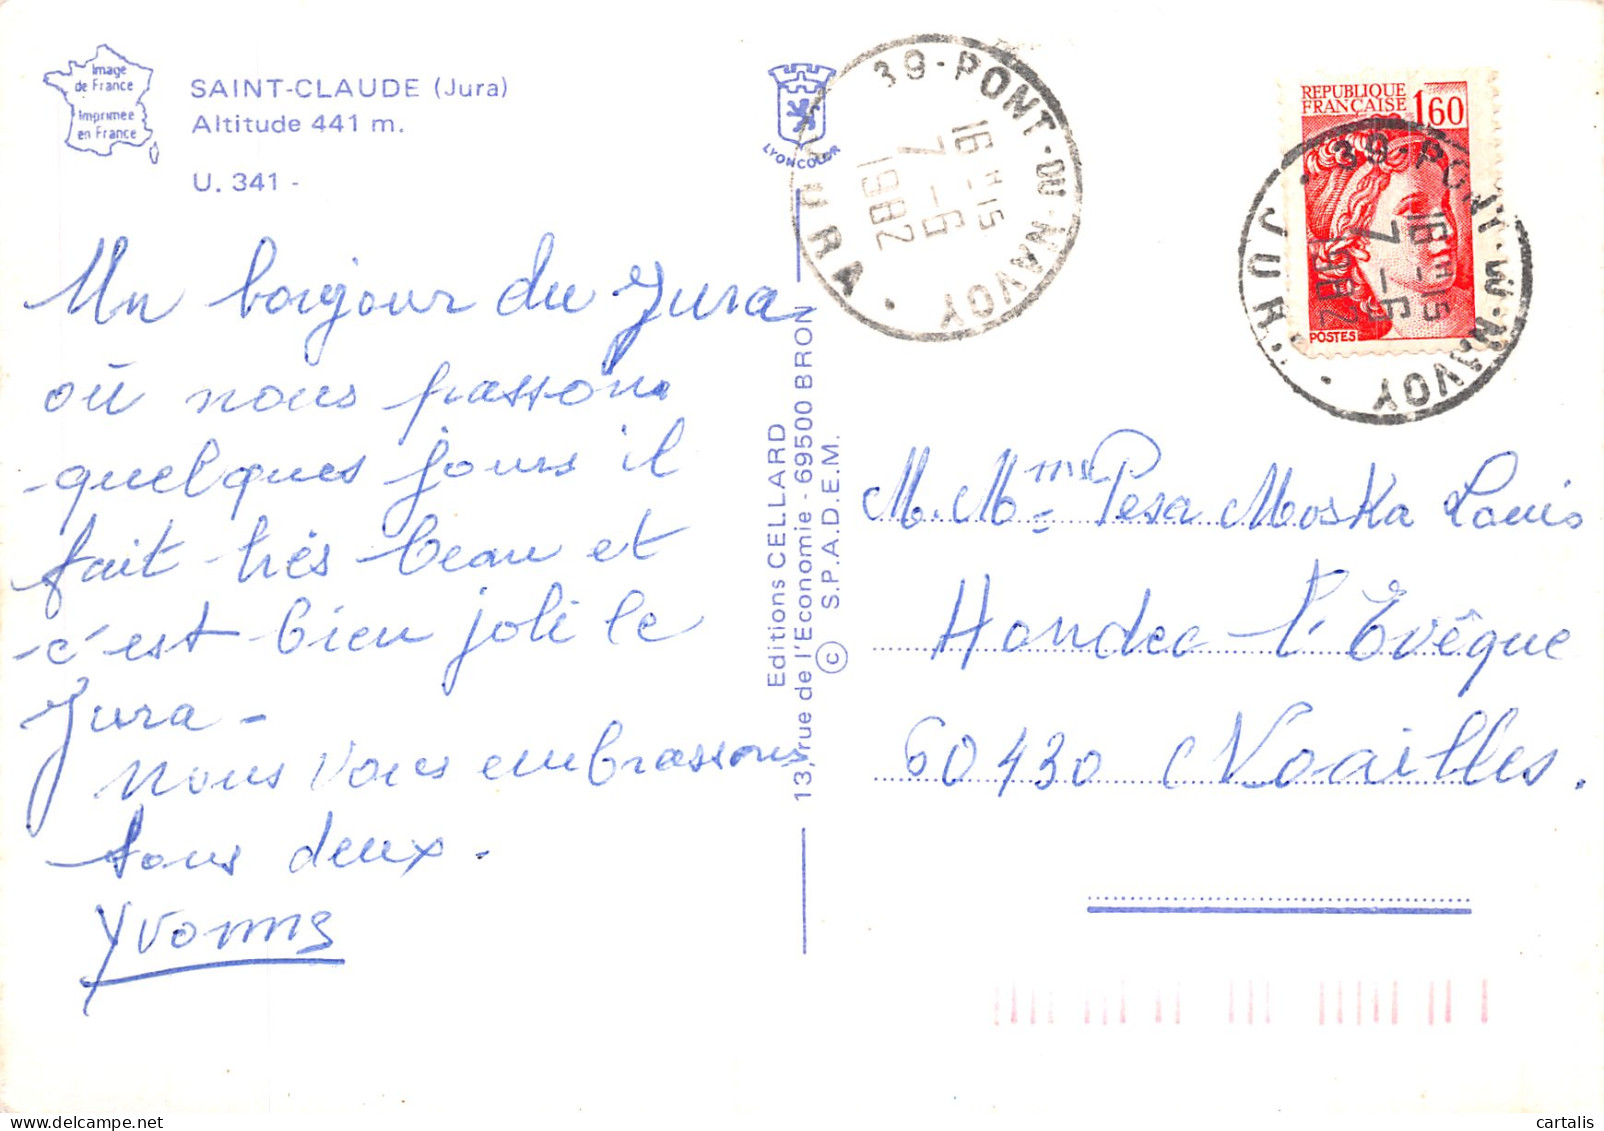 Image
de France
Imprimée
en France
SAINT-CLAUDE (Jura)
Altitude 441 m.
U. 341 -
Un bonjour du Jura
où nous passons
quelques jours il
fait très beau et
c'est bien joli le
Jura -
nous vous embrassons
tous deux.
Yvonne
LYONCOLOR
Editions CELLARD
13, rue de l'Economie - 69500 BRON
© S.P.A.D.E.M.
39-PONT-DU-NAVOY
16H15
7-6
1982
JURA
REPUBLIQUE
FRANÇAISE 1,60
POSTES
39-PONT-DU-NAVOY
16H15
7-6
1982
JURA
M. Mme Pesa Moska Louis
Hondec l'Evêque
60430 Noailles.
cartalis